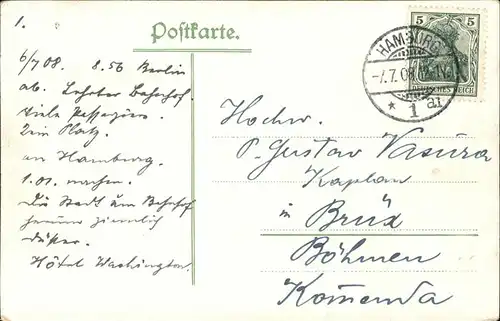 1.
Postkarte.
6/7 08. 8.56 Berlin
ab. Lehrter Bahnhof.
viele Passagiere
Kein Platz.
an Hamburg.
1.01. nachm.
Die Stadt um Bahnhof
ziemlich
düster.
Hôtel Washington.
5 5
DEUTSCHES REICH
HAMBURG
-7.7.08
* 1 a1
Hochw.
P. Gustav Vasura
Kaplan
in Brüx
Böhmen
Komenda